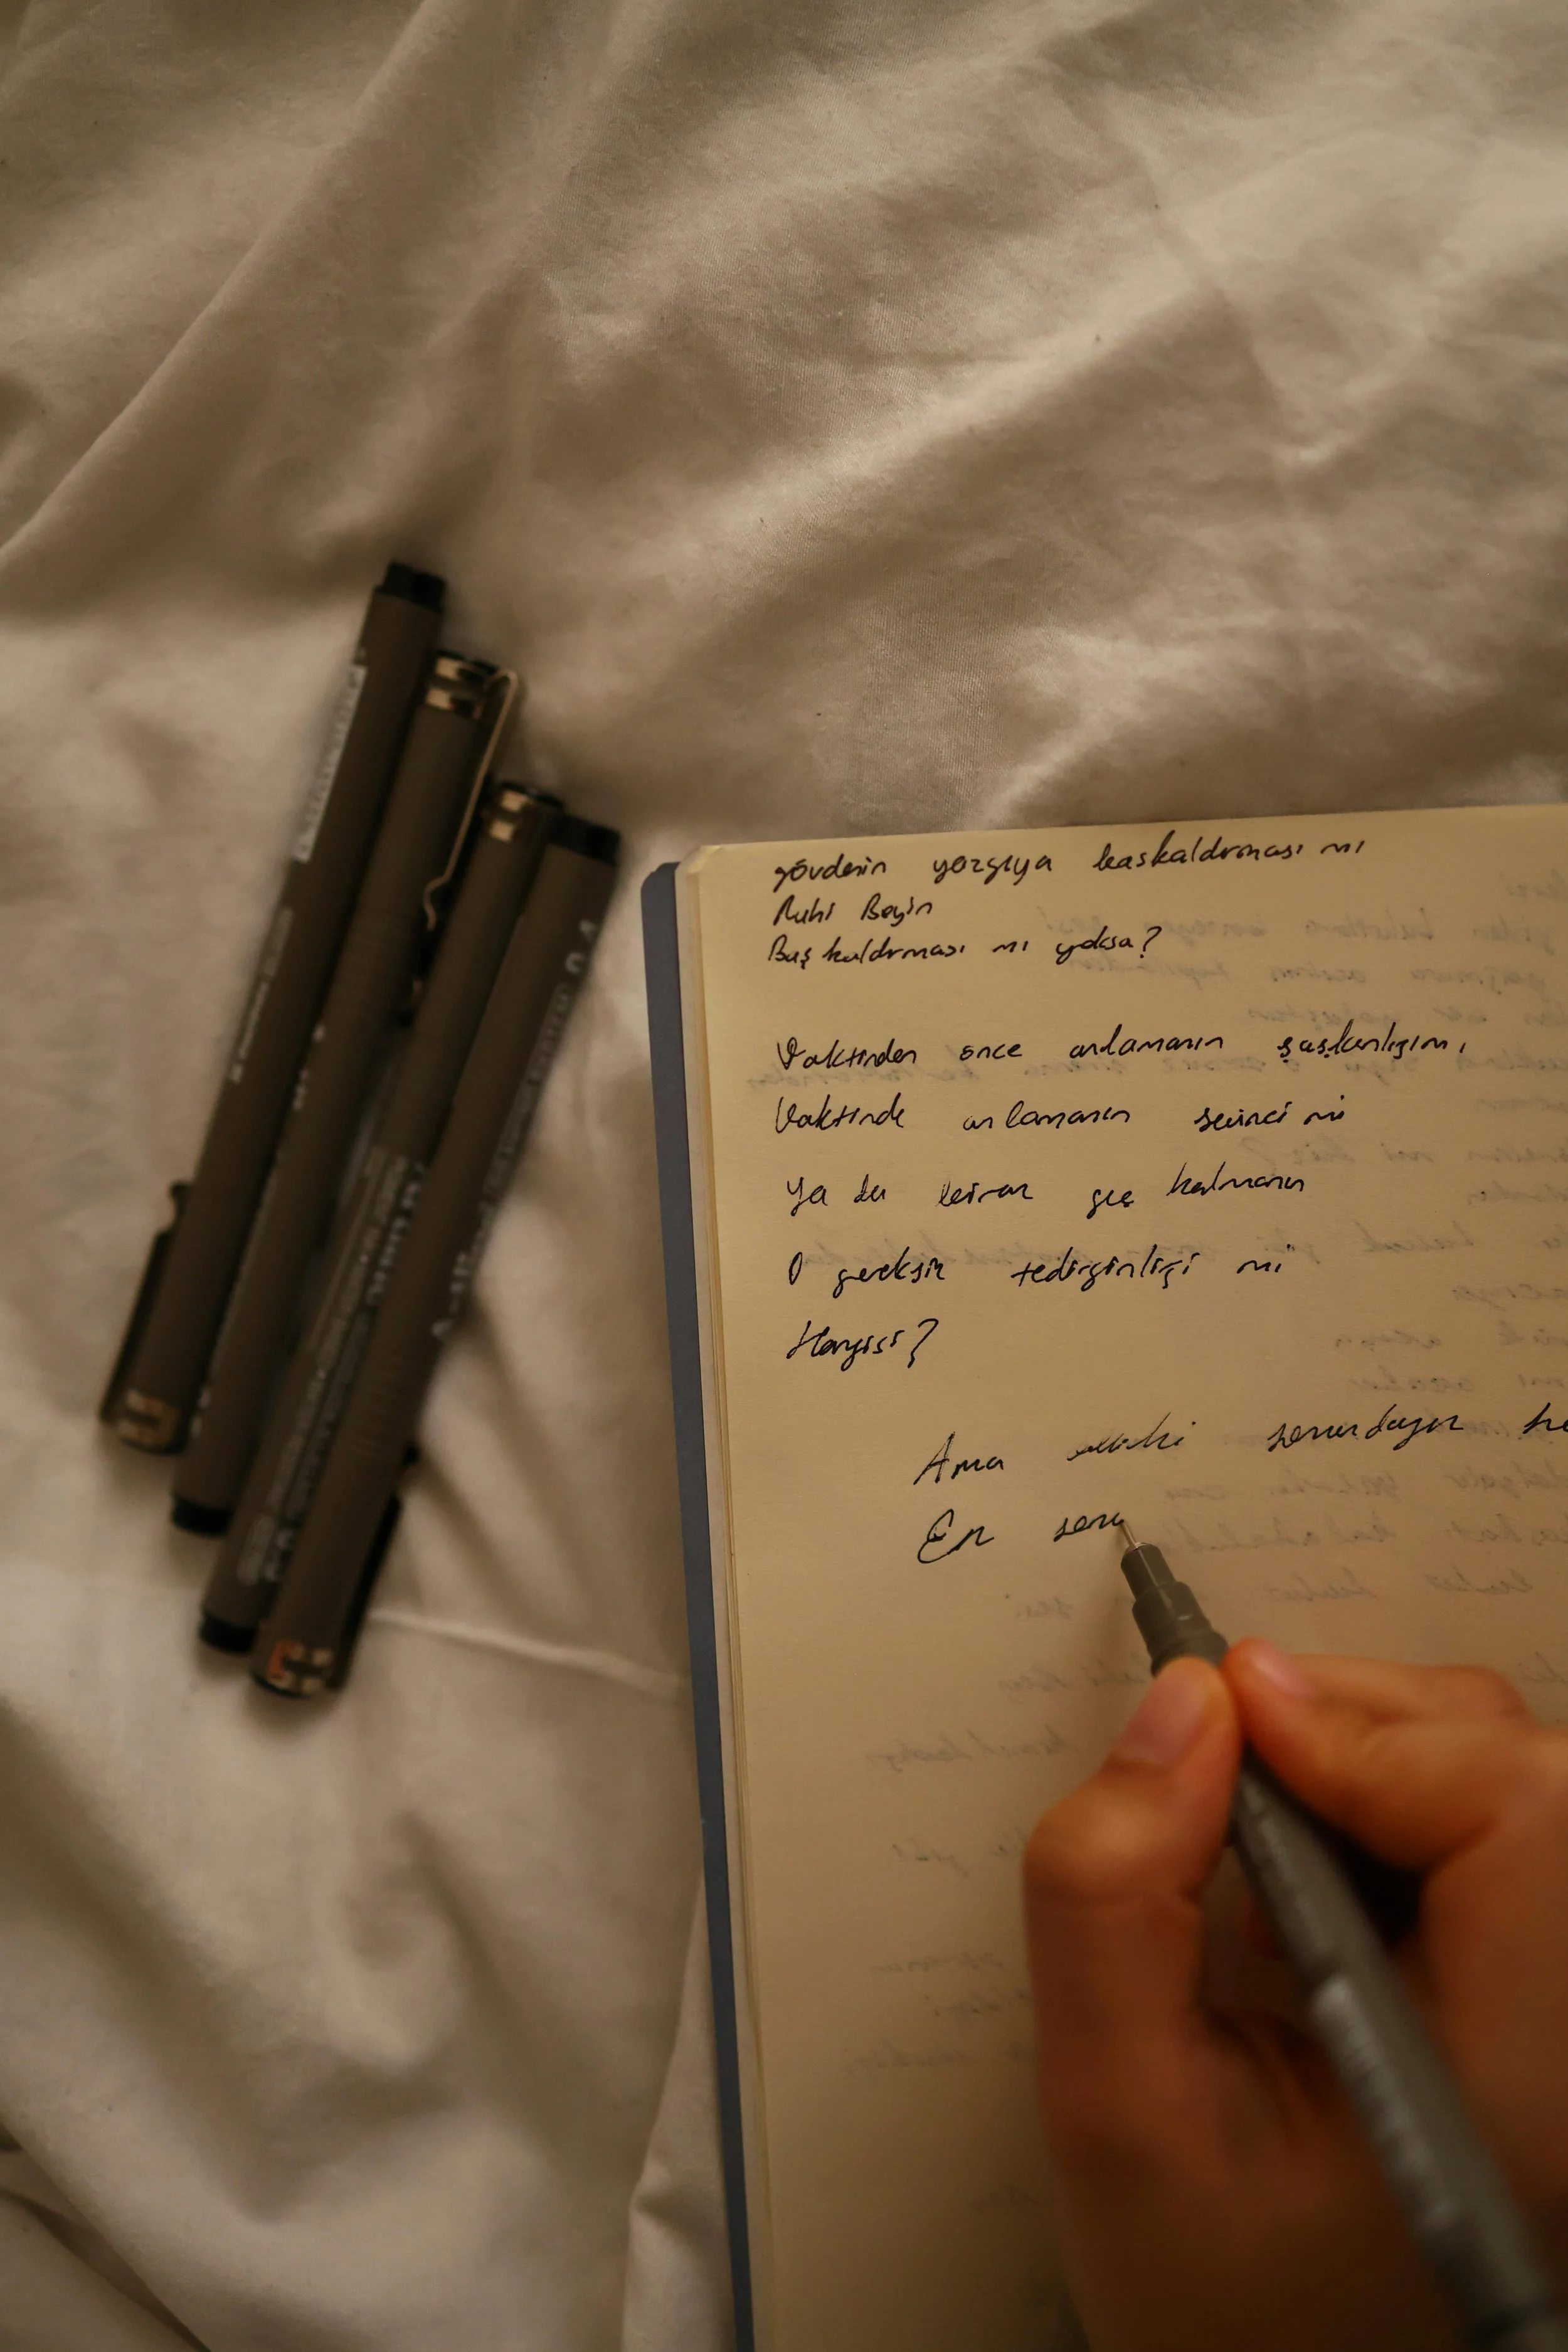 gövdenin yazgıya başkaldırması mı
Ruhi Beyin
Baş kaldırması mı yoksa?
Vaktinden önce anlamanın şaşkınlığı mı,
Vaktinde anlamanın sevinci mi
Ya da biraz geç kalmanın
O gereksiz tedirginliği mi
Hangisi?
Ama
En sonu
0.4